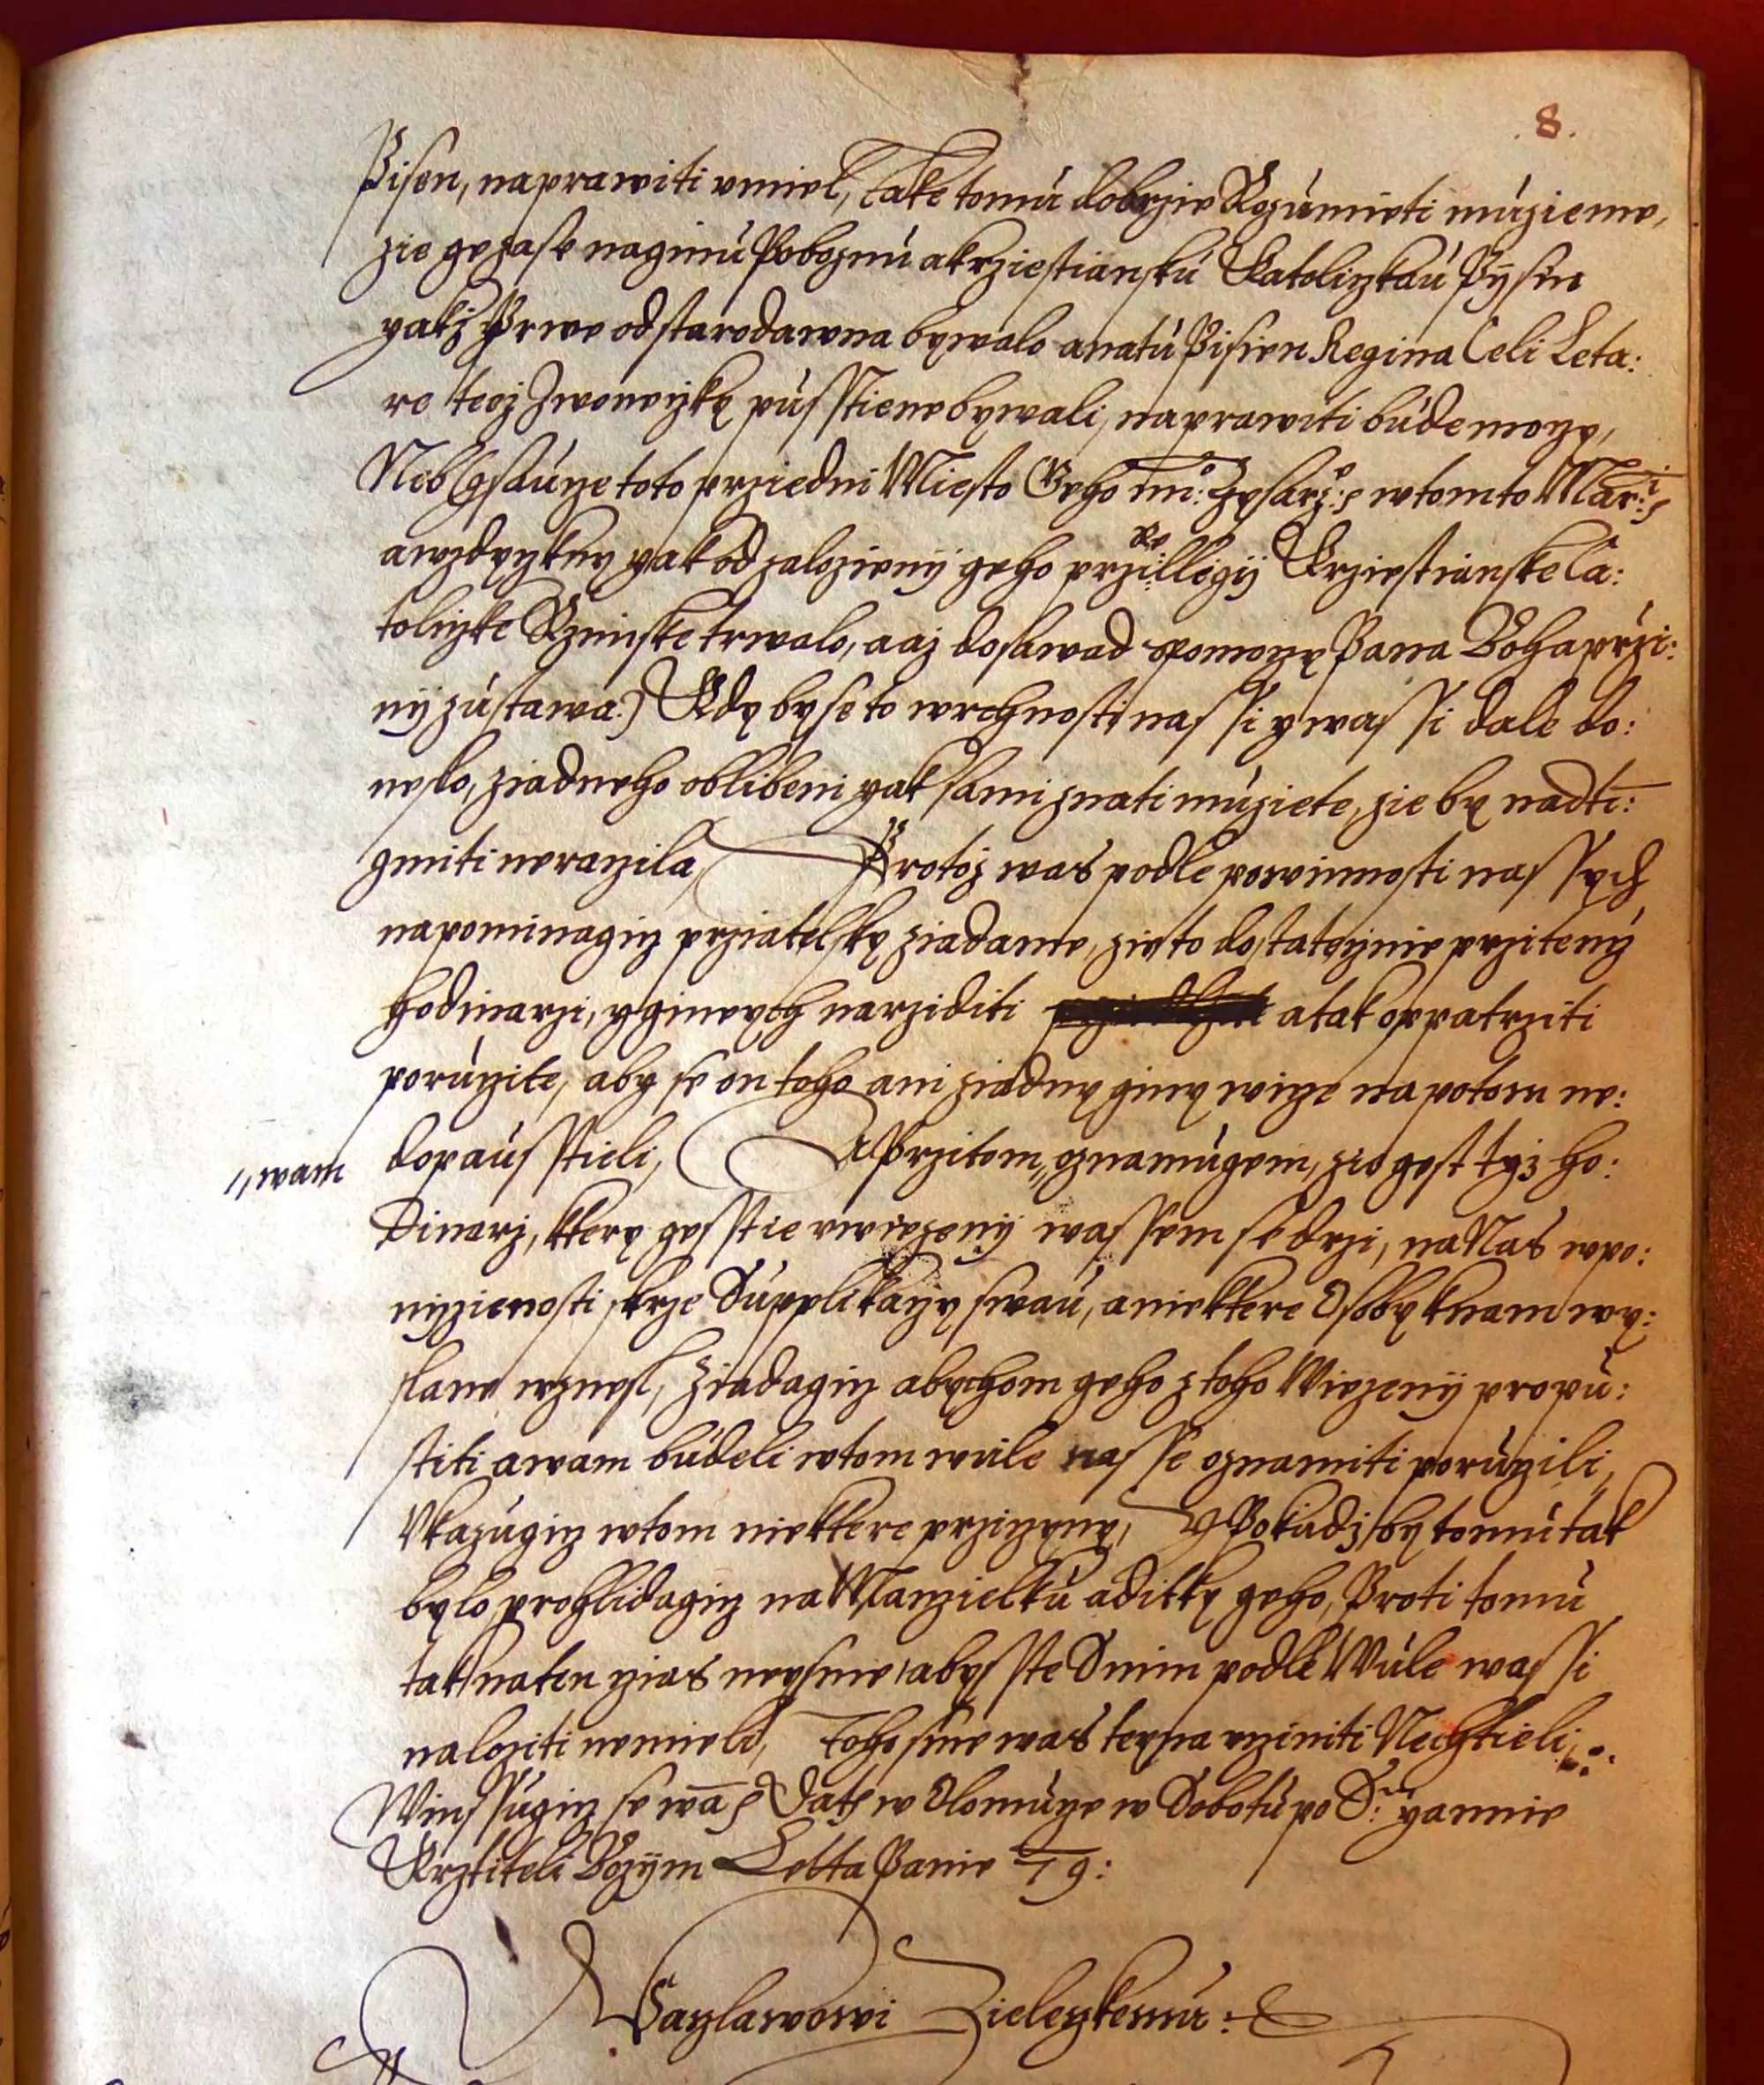 8.
Pisen, naprawiti vmiel, také tomu dobrzie Rozumieti muzieme,
zie ge zase naginu Poboznu a krziestiansku Katolizkau Pysen
yakz Prwe od starodawna bywalo a natu Pisien Regina Celi Leta:
re tez Zwoneczky pusstiene bywali, naprawiti bude moczy,
Neb (gsaucze toto przedni Miesto Geho mi: Czysarz: w tomto Mar:
a wzdyczkny yak od zalozieny geho przillegij Krziestianske Ca:
tolizke Rzimske trwalo, a az dosawad s pomoczy Pana Boha przi:
ny zustawa:) Kdy by se to wrchnosti nassi y wassi dale do:
neslo, ziadneho oblibeni yak sami znati muziete, zie by nadtim:
gmiti neraczila, Protoz was podle powinnosti nassych
napominagicz przatelsky ziadame, zie to dostateczinie przi temz
hodinarzi, y ginych narziditi a tak opatrziti
poruczite, aby se on toho ani ziadny giny wicze na potom ne:
dopausstieli, A Przitom „ oznamugem, zie gest tyz ho:
„ wam
dinarz, ktery gesstie v wiezeny wassem se drzi, na Nas w po:
niziienosti skrze Supplikaczy swau, a niekttere Osoby knam wy:
slane wznesl, ziadagicz abychom geho z toho Wiezeny propu:
stiti a wam budeli w tom wule nasse oznamiti poruczili,
Vkazugicz w tom niekttere przicziny, Y Pokudz by tomu tak
bylo prohlidagicz na Manzielku a ditky geho, Proti tomu
tak na ten czas neysme abysste s nim podle Wule wassi
naloziti nemieli, Toho sme was teyna vcziniti Nechtieli,
Winssugicz se wa Dat w Olomucze w Sobotu po S: yannie
Krztiteli Bozym Letta Panie 79:
Waczlawowi Zieleczkemu: